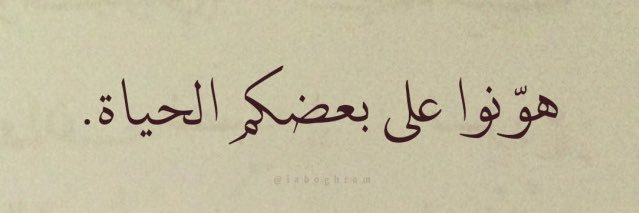 هوّنوا على بعضكم الحياة.
@iaboghram